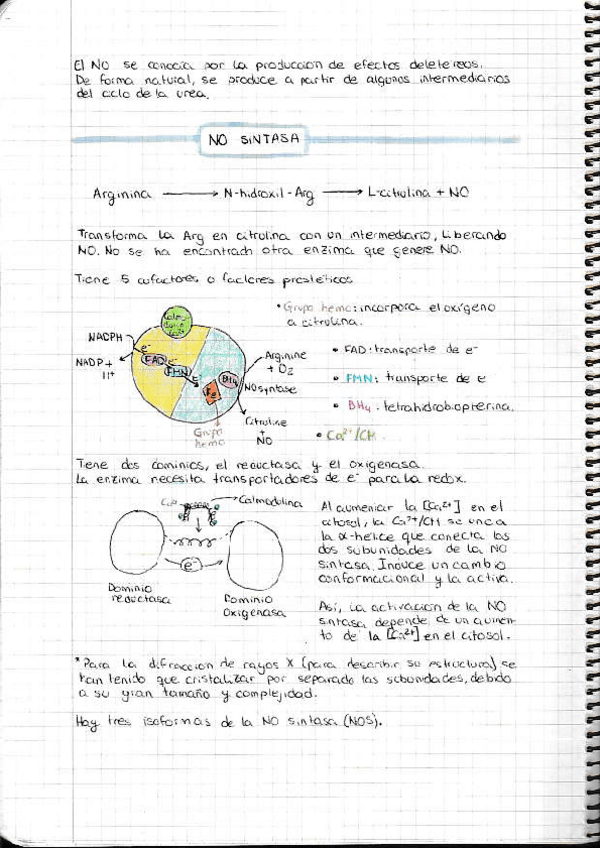 El NO se conocía por la producción de efectos deletereos.
De forma natural, se produce a partir de algunos intermediarios
del ciclo de la urea.
NO SINTASA
Arginina → N-hidroxil-Arg → L-citrulina + NO
Transforma la Arg en citrulina con un intermediario, liberando
NO. No se ha encontrado otra enzima que genere NO.
Tiene 5 cofactores o factores prostéticos
• Grupo hemo: incorpora el oxígeno
a citrulina.
• FAD: transporte de e⁻
• FMN: transporte de e
• BH₄: tetrahidrobiopterina.
• Ca²⁺/CM.
NADPH
NADP+
H⁺
e⁻
FAD
e⁻
FMN
e⁻
Fe
BH₄
Grupo
hemo
Arginine
+ O₂
NO syntase
Citruline
+
NO
Tiene dos dominios, el reductasa y el oxigenasa.
La enzima necesita transportadores de e⁻ para la redox.
Calmodulina
e⁻
Dominio
reductasa
Dominio
Oxigenasa
Al aumentar la [Ca²⁺] en el
citosol, la Ca²⁺/CM se une a
la α-hélice que conecta las
dos subunidades de la NO
sintasa. Induce un cambio
conformacional y la activa.
Así, la activación de la NO
sintasa depende de un aumen-
to de la [Ca²⁺] en el citosol.
*Para la difracción de rayos X (para describir su estructura) se
han tenido que cristalizar por separado las subunidades, debido
a su gran tamaño y complejidad.
Hay tres isoformas de la NO sintasa (NOS).